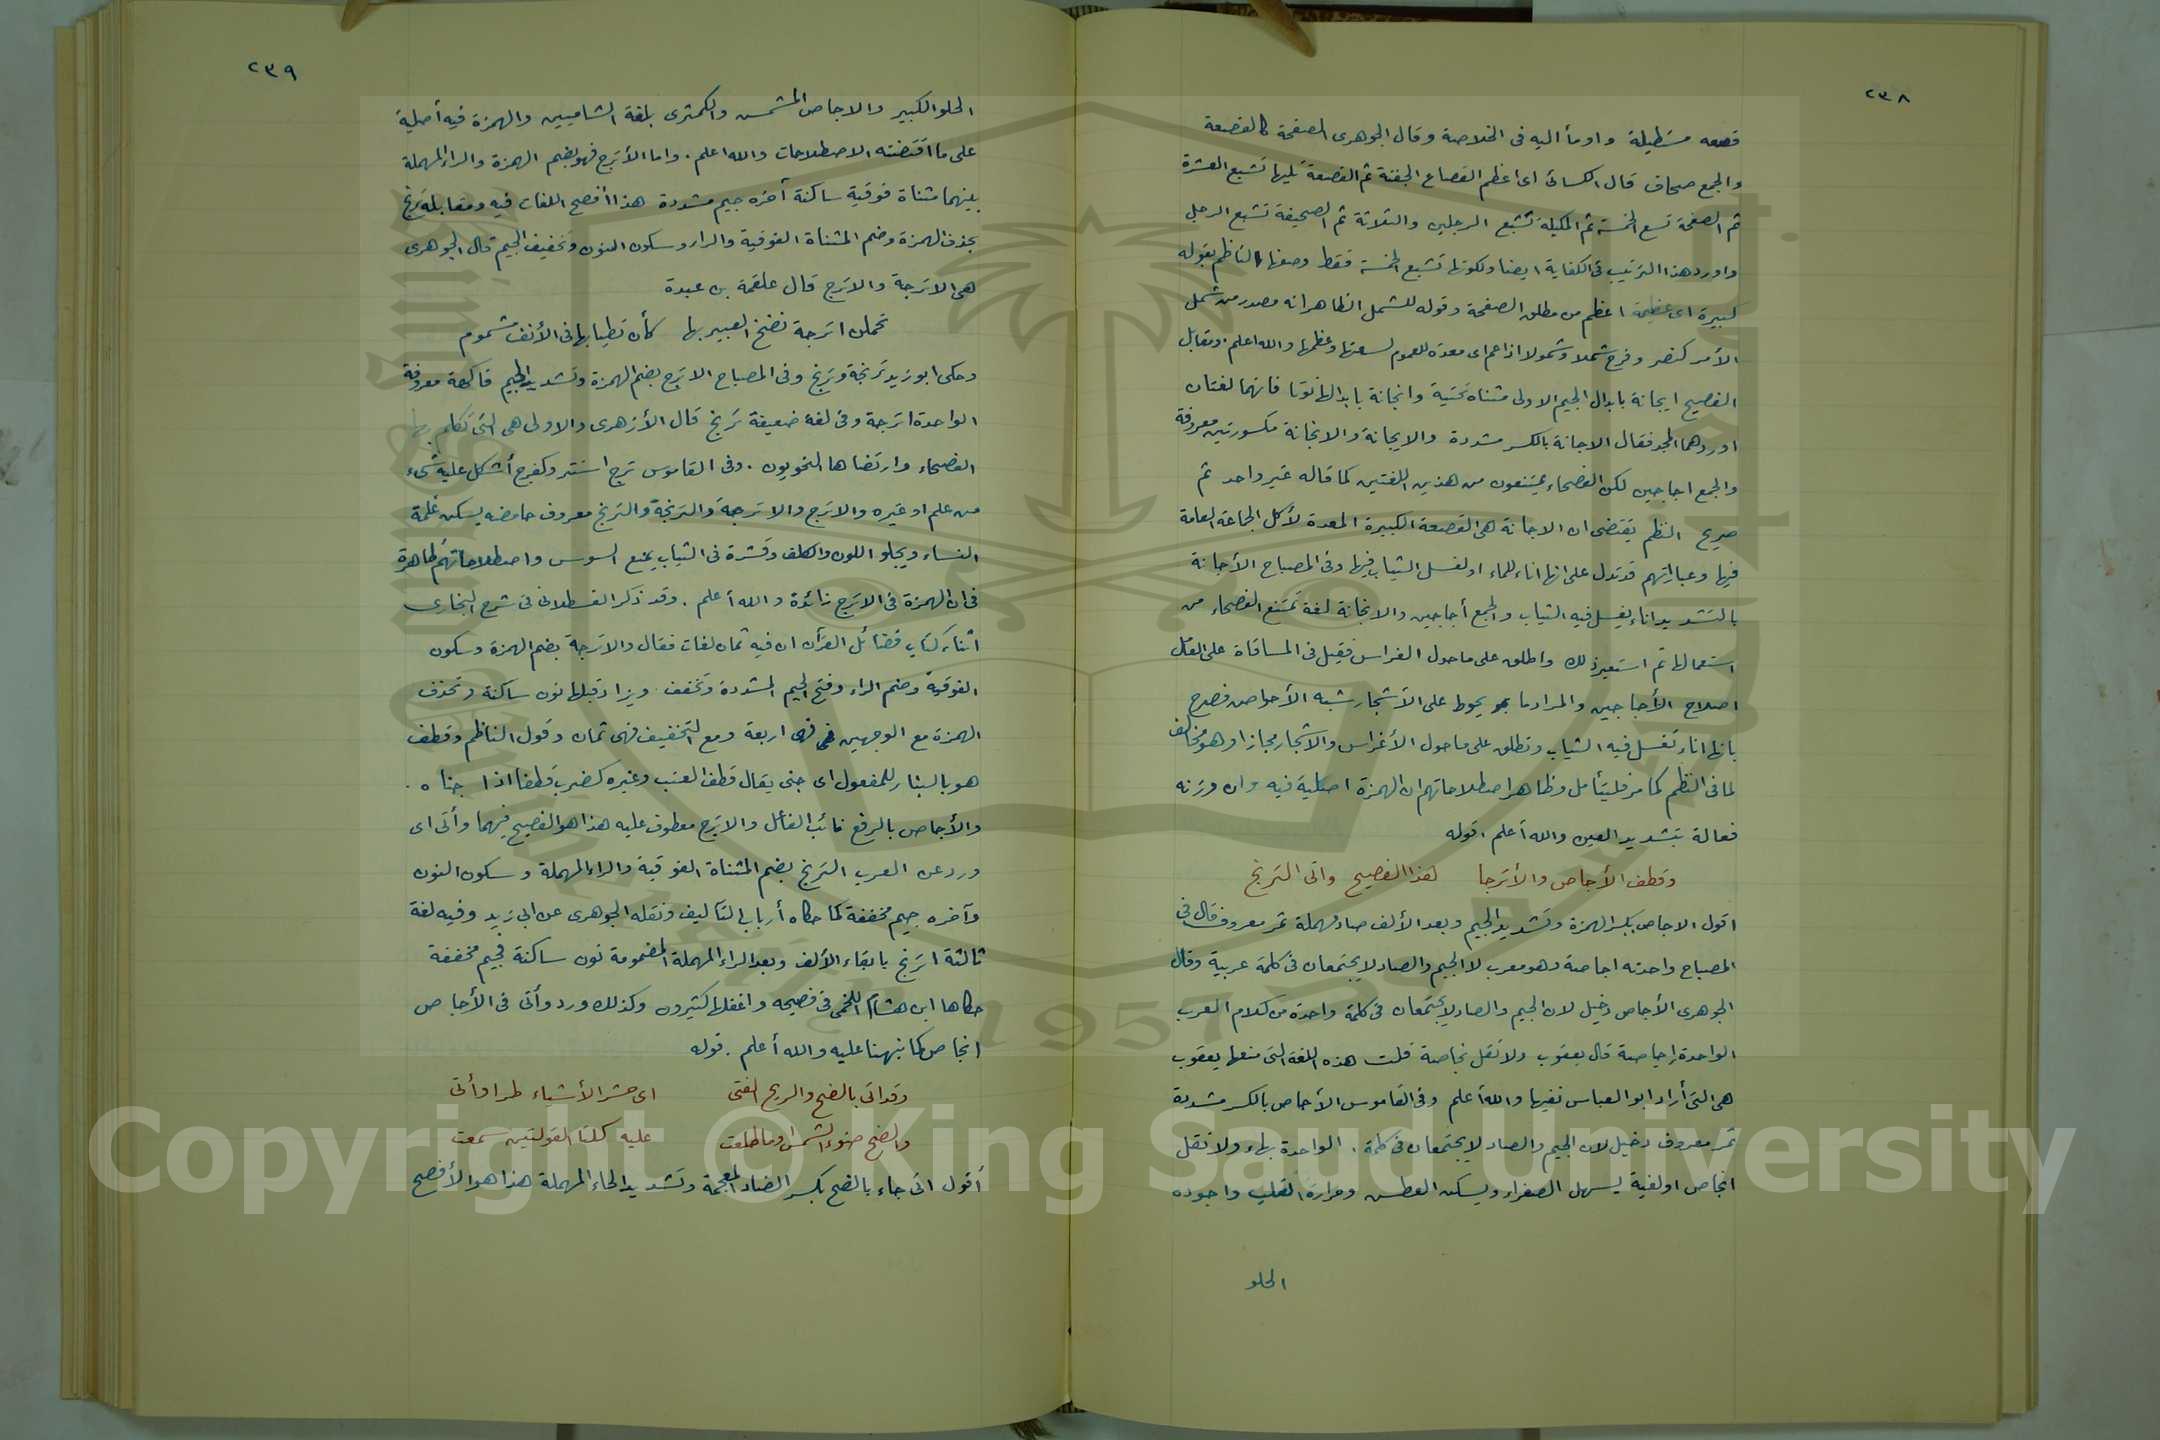 ٢٣٨
قصعه مستطيلة واومأ اليه فى الخلاصة وقال الجوهرى الصفحة كالقصعة
والجمع صحاف قال الكسائى اى اعظم القصاع الجفنة ثم القصعة تليها تشبع العشرة
ثم الصفحة تسع الخمسة ثم المكيلة تشبع الرجلين والثلاثة ثم الصحيفة تشبع الرجل
واورد هذا الترتيب فى الكفاية ايضا ولكونها تشبع الخمسة فقط وصفها الناظم بقوله
كبيرة اى عظيمة اعظم من مطلق الصفحة وقوله للشمل الظاهر انه مصدر من شمل
الأمر كنصر وفرح شملا وشمولا اذا عم اى معدة للعموم لسعتها وعظمها والله اعلم. ومقابل
الفصيح ايجانة بابدال الجيم الاولى مثناه تحتية وانجانة بابدالها نونا فانهما لغتان
اوردهما المجد فقال الاجانة بالكسر مشددة والايجانة والانجانة مكسورتين معروفة
والجمع اجاجين لكن الفصحاء يمتنعون من هذين اللغتين كما قاله غير واحد ثم
صريح النظم يقتضى ان الاجانة هى القصعة الكبيرة المعدة لأكل الجماعة العامة
فيها وعباراتهم قد تدل على انها اناء للماء او لغسل الثياب فيها وفى المصباح الأجانة
بالتشديد اناء يغسل فيه الثياب والجمع أجاجين والانجانة لغة تمتنع الفصحاء من
استعمالها ثم استعير ذلك واطلق على ماحول الغراس فقيل فى المساقاة على العامل
اصلاح الأجاجين والمراد ما يحوط على الأشجار شبه الأحواض فصرح
بانها اناء تغسل فيه الثياب وتطلق على ماحول الأغراس والاشجار مجازا وهو مخالف
لما فى النظم كما مر فليتأمل وظاهر اصطلاحاتهم ان الهمزة اصلية فيه وان وزنه
فعالة بتشديد العين والله أعلم قوله
وقطف الأجاص والأترجا هذا الفصيح واتى الترنج
اقول الاجاص بكسر الهمزة وتشديد الجيم وبعد الألف صاد مهملة ثمر معروف قال فى
المصباح واحدته اجاصة وهو معرب لا الجيم والصاد لا يجتمعان فى كلمة عربية وقال
الجوهرى الأجاص دخيل لان الجيم والصاد لا يجتمعان فى كلمة واحدة من كلام العرب
الواحدة إجاصة قال يعقوب ولا تقل نجاصة قلت هذه اللغة التى منعها يعقوب
هى التى أراد ابو العباس نفيها والله أعلم وفى القاموس الأجاص بالكسر مشددة
ثمر معروف دخيل لان الجيم والصاد لا يجتمعان فى كلمة. الواحدة بهاء ولا تقل
انجاص اولغية يسهل الصفراء ويسكن العطس وحرارة القلب واجوده
الحلو
٢٣٩
الحلو الكبير والاجاص المشمس والكمثرى بلغة الشاميين والهمزة فيه أصلية
على ما اقتضته الاصطلاحات والله اعلم. واما الأترج فهو بضم الهمزة والراء المهملة
بينهما مثناة فوقية ساكنة آخره جيم مشددة هذا أفصح اللغات فيه ومقابله ترنج
بحذف الهمزة وضم المثناة الفوقية والراء وسكون النون وتخفيف الجيم قال الجوهرى
هى الاترجة والاترج قال علقمة بن عبدة
تحملن اترجة نضخ العبير بها كأن تطيابها فى الأنف مشموم
وحكى ابو زيد ترنجة وترنج وفى المصباح الاترج بضم الهمزة وتشديد الجيم فاكهة معروفة
الواحدة اترجة وفى لغة ضعيفة ترنج قال الأزهرى والاولى هى التى تكلم بها
الفصحاء وارتضاها النحويون. وفى القاموس ترج استتر وكفرح أشكل عليه شىء
من علم او غيره والاترج والاترجة والترنجة والترنج معروف حامضه يسكن غلمة
النساء ويجلو اللون والكلف وقشرة فى الثياب يمنع السوس واصطلاحاتهم ظاهرة
فى ان الهمزة فى الاترج زائدة والله أعلم. وقد ذكر القسطلانى فى شرح البخارى
اثناء كتاب فضائل القرأن ان فيه ثمان لغات فقال والاترجة بضم الهمزة وسكون
الفوقية وضم الراء وفتح الجيم المشددة وتخفف ويزاد قبلها نون ساكنة وتحذف
الهمزة مع الوجهين فهى اربعة ومع التخفيف فهى ثمان وقول الناظم وقطف
هو بالبناء للمفعول اى جنى يقال قطف العنب وغيره كضرب قطفا اذا جناه.
والأجاص بالرفع نائب الفاعل والاترج معطوف عليه هذا هو الفصيح فيهما وأتى اى
ورد عن العرب الترنج بضم المثناة الفوقية والراء المهملة وسكون النون
وآخره جيم مخففة كما حكاه أرباب التآليف ونقله الجوهرى عن ابى زيد وفيه لغة
ثالثة اترنج بابقاء الألف وبعد الراء المهملة المضمومة نون ساكنة فجيم مخففة
حكاها ابن هشام اللخمى فى فصيحه واغفلها كثيرون وكذلك ورد وأتى فى الأجاص
انجاص كما نبهنا عليه والله أعلم. قوله
وقد اتى بالضح والريح الفتى اى حشر الأشياء طرا وأتى
والضح ضوء الشمس او ما طلعت عليه كلتا القولتين سمعت
أقول اتى جاء بالضح بكسر الضاد المعجمة وتشديد الحاء المهملة هذا هو الأفصح
Copyright © King Saud University
1957